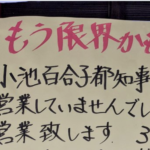 もう限界かも
小池百合子都知事
営業していませんでし
営業致します。3